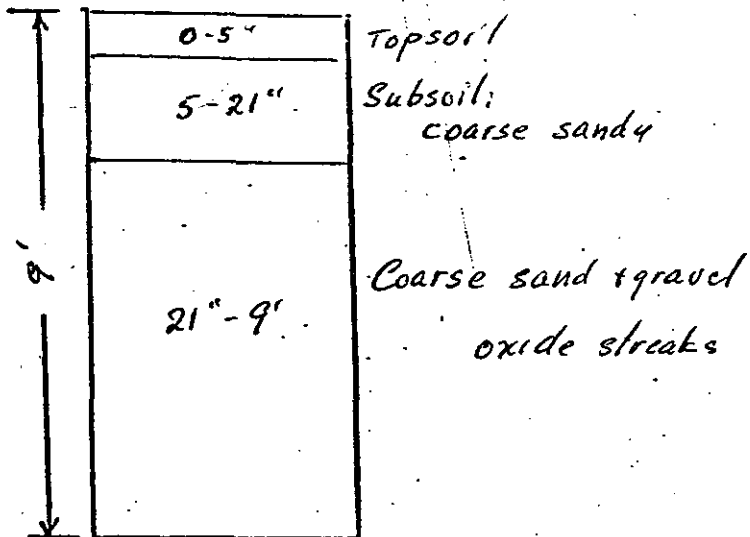 0-5" Topsoil
5-21" Subsoil:
coarse sandy
9'
21"-9' Coarse sand + gravel
oxide streaks